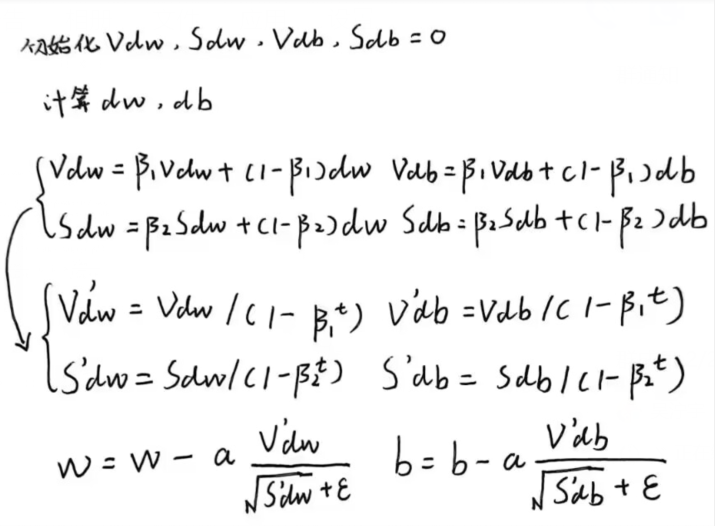 初始化 Vdw , Sdw , Vdb , Sdb = 0
计算 dw , db
Vdw = β₁Vdw + (1-β₁)dw Vdb = β₁Vdb + (1-β₁)db
Sdw = β₂Sdw + (1-β₂)dw Sdb = β₂Sdb + (1-β₂)db
V'dw = Vdw / (1-β₁ᵗ) V'db = Vdb / (1-β₁ᵗ)
S'dw = Sdw / (1-β₂ᵗ) S'db = Sdb / (1-β₂ᵗ)
w = w - a V'dw / (√S'dw + ε) b = b - a V'db / (√S'db + ε)